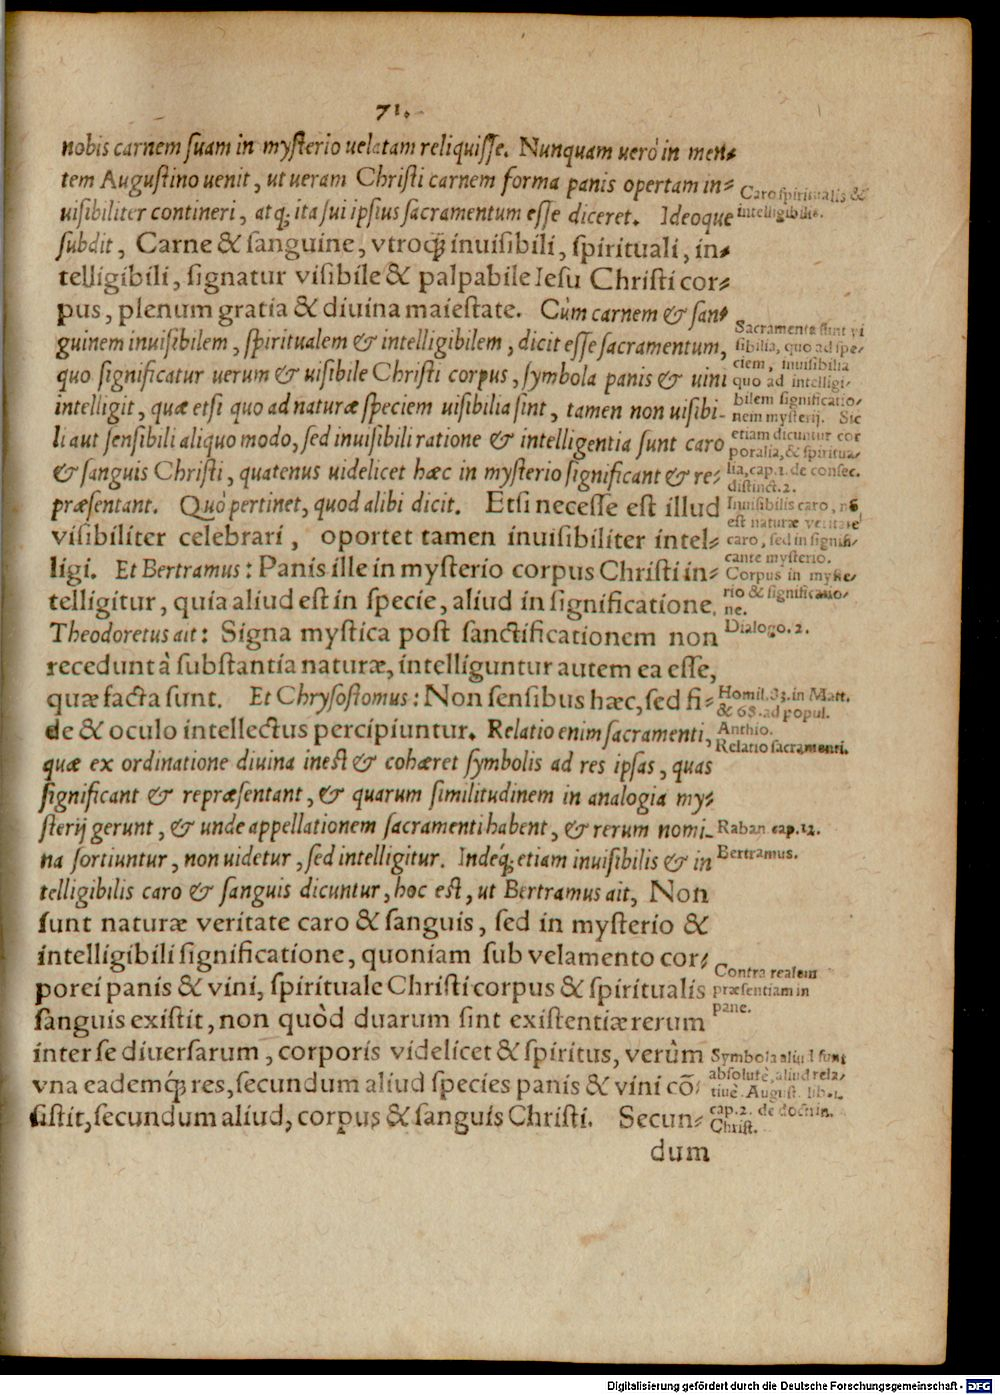 71.
nobis carnem ſuam in myſterio uelatam reliquiſſe. Nunquam uerò in men-
tem Auguſtino uenit, ut ueram Chriſti carnem forma panis opertam in-
uiſibiliter contineri, atq; ita ſui ipſius ſacramentum eſſe diceret. Ideoque
ſubdit, Carne & ſanguine, vtroq; inuiſibili, ſpirituali, in-
telligibili, ſignatur viſibile & palpabile Ieſu Chriſti cor-
pus, plenum gratia & diuina maieſtate. Cùm carnem & ſan-
guinem inuiſibilem, ſpiritualem & intelligibilem, dicit eſſe ſacramentum,
quo ſignificatur uerum & uiſibile Chriſti corpus, ſymbola panis & uini
intelligit, quæ etſi quo ad naturæ ſpeciem uiſibilia ſint, tamen non uiſibi-
li aut ſenſibili aliquo modo, ſed inuiſibili ratione & intelligentia ſunt caro
& ſanguis Chriſti, quatenus uidelicet hæc in myſterio ſignificant & re-
præſentant. Quò pertinet, quod alibi dicit. Etſi neceſſe eſt illud
viſibiliter celebrari, oportet tamen inuiſibiliter intel-
ligi. Et Bertramus: Panis ille in myſterio corpus Chriſti in-
telligitur, quia aliud eſt in ſpecie, aliud in ſignificatione.
Theodoretus ait: Signa myſtica poſt ſanctificationem non
recedunt à ſubſtantia naturæ, intelliguntur autem ea eſſe,
quæ facta ſunt. Et Chryſoſtomus: Non ſenſibus hæc, ſed fi-
de & oculo intellectus percipiuntur. Relatio enim ſacramenti,
quæ ex ordinatione diuina ineſt & cohæret ſymbolis ad res ipſas, quas
ſignificant & repræſentant, & quarum ſimilitudinem in analogia my-
ſterij gerunt, & unde appellationem ſacramenti habent, & rerum nomi-
na ſortiuntur, non uidetur, ſed intelligitur. Indeq́; etiam inuiſibilis & in
telligibilis caro & ſanguis dicuntur, hoc eſt, ut Bertramus ait, Non
ſunt naturæ veritate caro & ſanguis, ſed in myſterio &
intelligibili ſignificatione, quoniam ſub velamento cor-
porei panis & vini, ſpirituale Chriſti corpus & ſpiritualis
ſanguis exiſtit, non quòd duarum ſint exiſtentiæ rerum
inter ſe diuerſarum, corporis videlicet & ſpiritus, verùm
vna eademq́; res, ſecundum aliud ſpecies panis & vini cõ-
ſiſtit, ſecundum aliud, corpus & ſanguis Chriſti. Secun-
dum
Caro ſpiritualis &
intelligibilis.
Sacramenta ſunt vi
ſibilia, quo ad ſpe-
ciem, inuiſibilia
quo ad intelligi-
bilem ſignificatio-
nem myſterij. Sic
etiam dicuntur cor
poralia, & ſpiritua-
lia, cap. 1. de conſec.
diſtinct. 2.
Inuiſibilis caro, nõ
eſt naturæ veritate
caro, ſed in ſignifi-
cante myſterio.
Corpus in myſte-
rio & ſignificatio-
ne.
Dialogo. 2.
Homil. 83. in Matt.
& 68. ad popul.
Anthio.
Relatio sacramenti.
Raban. cap. 12.
Bertramus.
Contra realem
præſentiam in
pane.
Symbola aliud ſunt
abſolutè, aliud rela-
tiuè. Auguſt. lib. 1.
cap. 2. de doctrin.
Chriſt.
Digitalisierung gefördert durch die Deutsche Forschungsgemeinschaft - DFG